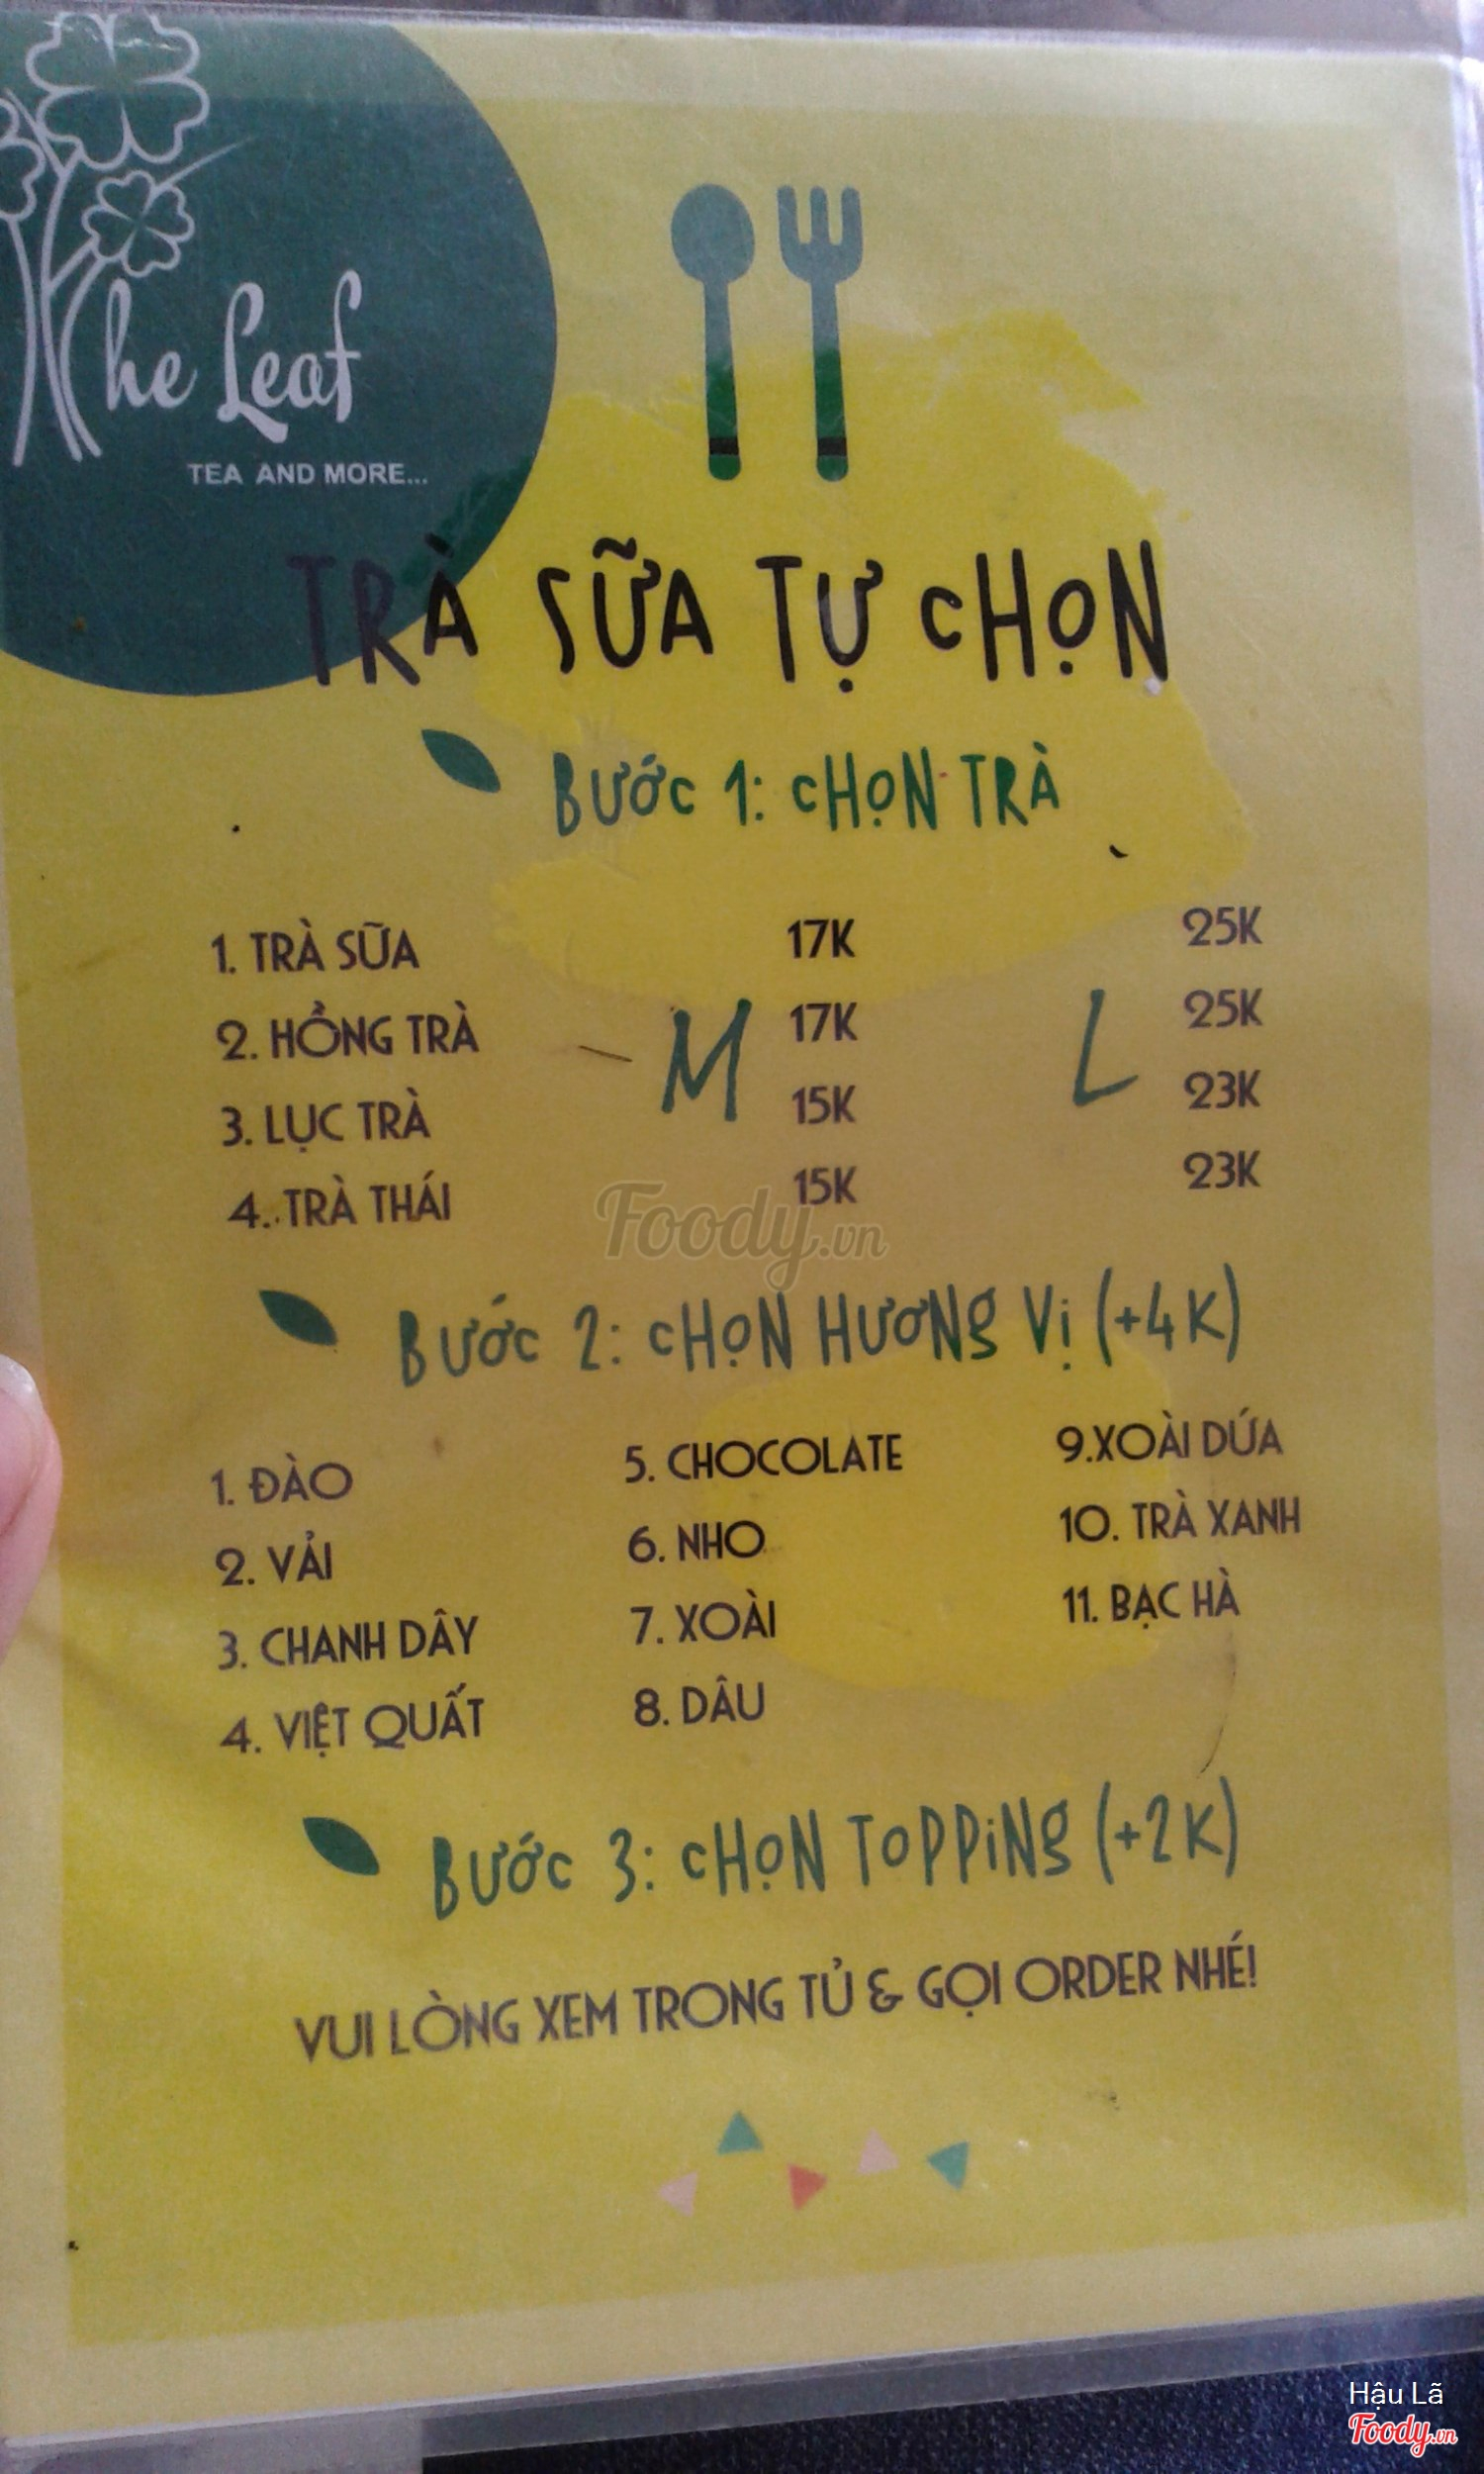 The Leaf
TEA AND MORE...
TRÀ SỮA TỰ CHỌN
BƯỚC 1: CHỌN TRÀ
1. TRÀ SỮA 17K 25K
2. HỒNG TRÀ 17K 25K
M L
3. LỤC TRÀ 15K 23K
4. TRÀ THÁI 15K 23K
Foody.vn
BƯỚC 2: CHỌN HƯƠNG VỊ (+4K)
1. ĐÀO 5. CHOCOLATE 9.XOÀI DỨA
2. VẢI 6. NHO 10. TRÀ XANH
3. CHANH DÂY 7. XOÀI 11. BẠC HÀ
4. VIỆT QUẤT 8. DÂU
BƯỚC 3: CHỌN TOPPING (+2K)
VUI LÒNG XEM TRONG TỦ & GỌI ORDER NHÉ!
Hậu Lã
Foody.vn